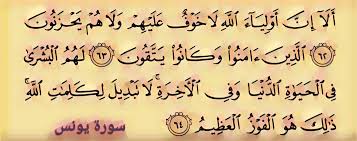 أَلَآ إِنَّ أَوْلِيَآءَ ٱللَّهِ لَا خَوْفٌ عَلَيْهِمْ وَلَا هُمْ يَحْزَنُونَ
﴿٦٢﴾ ٱلَّذِينَ ءَامَنُوا۟ وَكَانُوا۟ يَتَّقُونَ ﴿٦٣﴾ لَهُمُ ٱلْبُشْرَىٰ
فِى ٱلْحَيَوٰةِ ٱلدُّنْيَا وَفِى ٱلْءَاخِرَةِ ۚ لَا تَبْدِيلَ لِكَلِمَـٰتِ ٱللَّهِ ۚ
ذَٰلِكَ هُوَ ٱلْفَوْزُ ٱلْعَظِيمُ ﴿٦٤﴾ سورة يونس